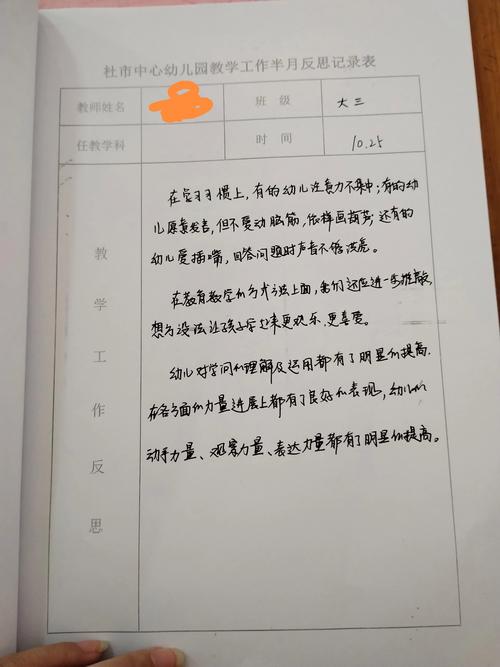 杜市中心幼儿园教学工作半月反思记录表
教师姓名 班级 大三
任教学科 时间 10.25
教学工作反思
在学习习惯上,有的幼儿注意力不集中;有的幼
儿愿意发言,但不爱动脑筋,依样画葫芦;还有的
幼儿爱插嘴,回答问题时声音不够洪亮。
在教育教学的方式方法上面,我们还应进一步推敲,
想方设法让孩子学起来更欢乐、更喜爱。
幼儿对学问的理解及运用都有了明显的提高.
在各方面的力量进展上都有了良好的表现,幼儿的
动手力量、观察力量、表达力量都有了明显的提高。